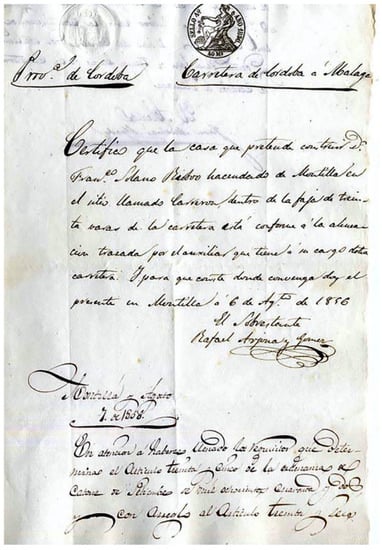 SELLO 4º AÑO 1856
40 MS
Prov.ª de Cordoba
Carretera de Cordoba á Malaga
Certifico que la casa que pretende construir D.
Fran.co Solano Riobvo hacendado de Montilla en
el sitio llamado Carreron, dentro de la faja de trein-
ta varas de la carretera está conforme á la alinea-
cion trazada por el auxiliar que tiene á su cargo dicha
carretera. Y para que conste donde convenga doy el
presente en Montilla á 6 de Ag.to de 1856
El Sobrestante
Rafael Arjona y Gomez
Montilla y Agosto
7. de 1856.
En atencion á haberse llenado los requisitos que deter-
mina el Articulo treinta y cinco de la ordenanza de
Catorce de Setiembre de mil ochocientos cuarenta y dos
y con arreglo al Articulo treinta y seis